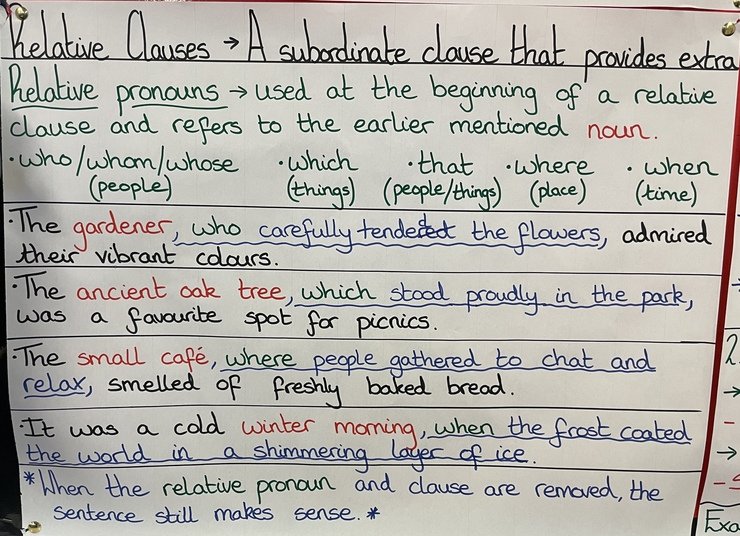 Relative Clauses → A subordinate clause that provides extra
Relative pronouns → used at the beginning of a relative
clause and refers to the earlier mentioned noun.
·who/whom/whose ·which ·that ·where ·when
(people) (things) (people/things) (place) (time)
·The gardener, who carefully tended the flowers, admired
their vibrant colours.
·The ancient oak tree, which stood proudly in the park,
was a favourite spot for picnics.
·The small café, where people gathered to chat and
relax, smelled of freshly baked bread.
·It was a cold winter morning, when the frost coated
the world in a shimmering layer of ice.
*When the relative pronoun and clause are removed, the
sentence still makes sense.*
2.
→
-
→
-S
Exa